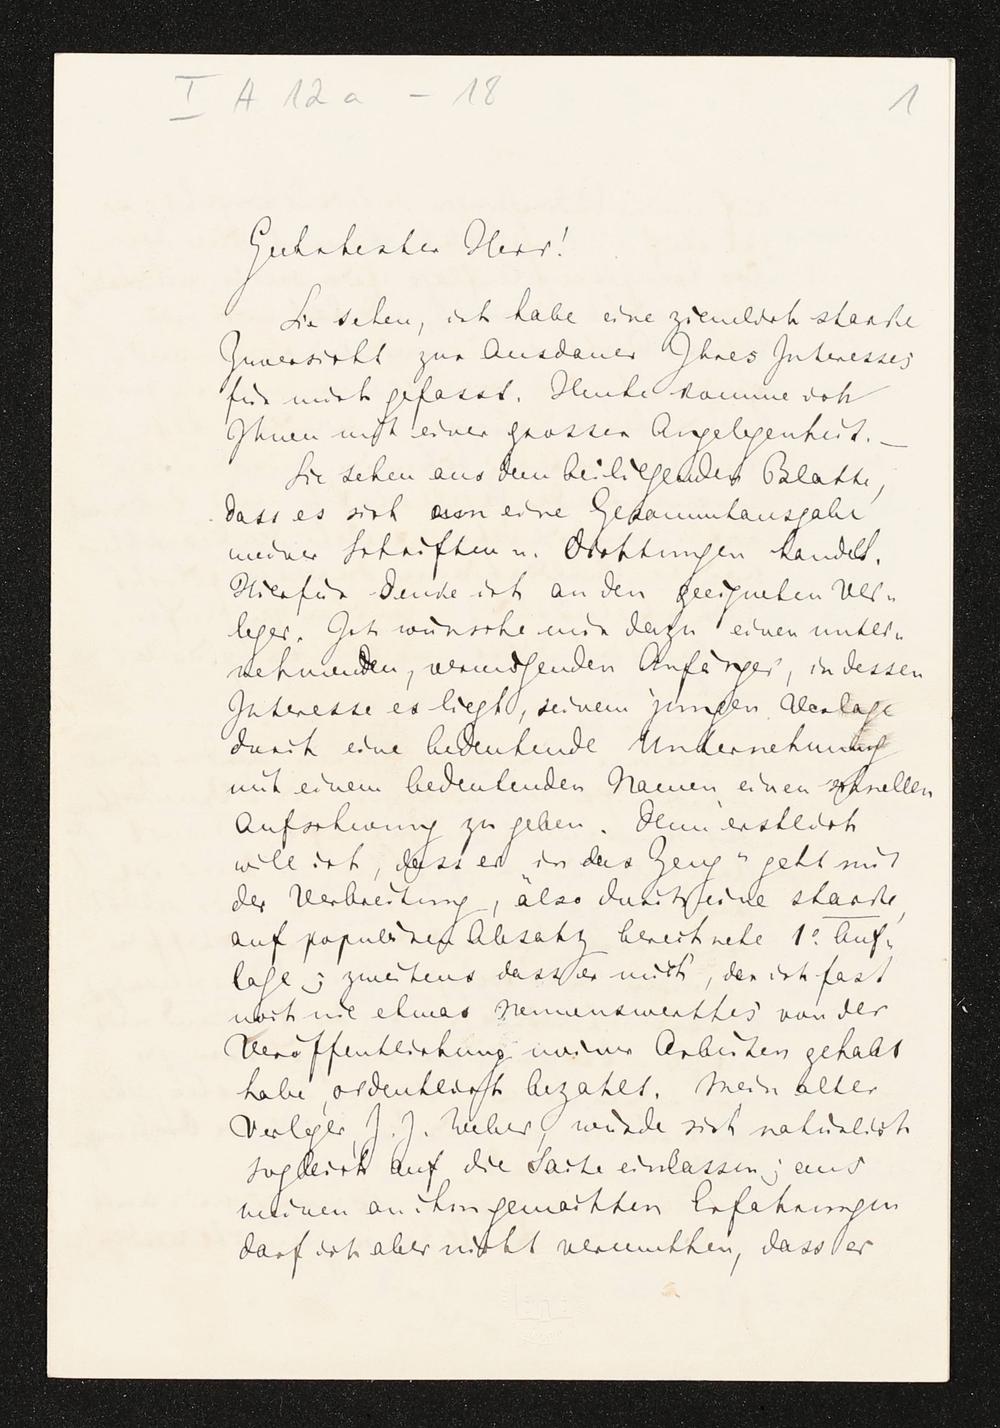 I A 12a - 18
1
Geehrtester Herr!
Sie sehen, ich habe eine ziemlich starke
Zuversicht zur Ausdauer Ihres Interesses
für mich gefasst. Heute komme ich
Ihnen mit einer grossen Angelegenheit. —
Sie sehen aus dem beiliegenden Blatte,
dass es sich um eine Gesammtausgabe
meiner Schriften u. Dichtungen handelt.
Hierfür denke ich an den geeigneten Ver-
leger. Ich wünsche mir dazu einen unter-
nehmenden, vermögenden Anfänger, in dessen
Interesse es liegt, seinem jungen Verlage
durch eine bedeutende Unternehmung
mit einem bedeutenden Namen einen schnellen
Aufschwung zu geben. Denn erstlich
will ich, dass er „in das Zeug" geht mit
der Verbreitung, also durch eine starke,
auf populären Absatz berechnete 1º. Auf-
lage; zweitens dass er mich, der ich fast
noch nie etwas Nennenswerthes von der
Veröffentlichung meiner Arbeiten gehabt
habe, ordentlich bezahlt. Mein alter
Verleger, J. J. Weber, würde sich natürlich
sogleich auf die Sache einlassen; aus
meinen an ihm gemachten Erfahrungen
darf ich aber nicht vermuthen, dass er